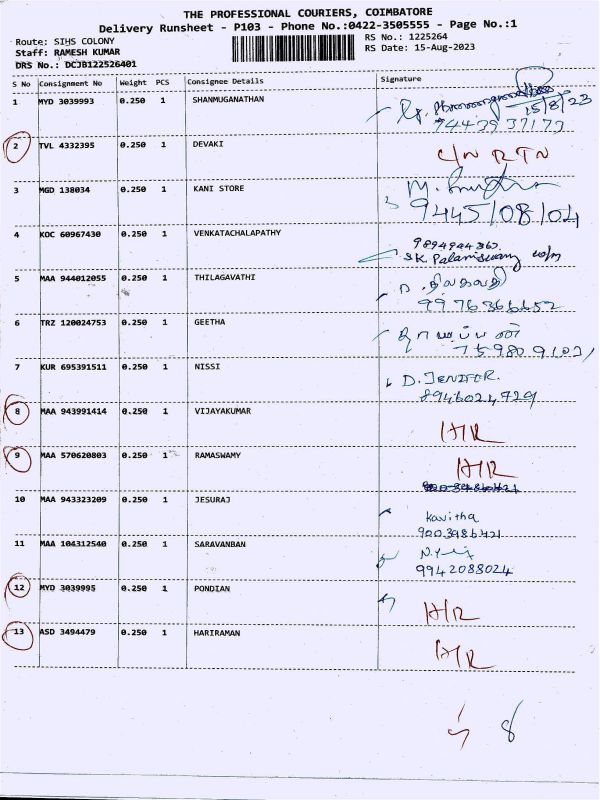 THE PROFESSIONAL COURIERS, COIMBATORE
Delivery Runsheet - P103 - Phone No.:0422-3505555 - Page No.:1
Route: SIHS COLONY RS No.: 1225264
Staff: RAMESH KUMAR RS Date: 15-Aug-2023
DRS No.: DCJB122526401
S No Consignment No Weight PCS Consignee Details Signature
1 MYD 3039993 0.250 1 SHANMUGANATHAN
15/8/23
74439 37173
2 TVL 4332395 0.250 1 DEVAKI C/N RTN
3 MGD 138034 0.250 1 KANI STORE
9445/08/04
4 KOC 60967430 0.250 1 VENKATACHALAPATHY
S.K. Palaniswamy
5 MAA 944012055 0.250 1 THILAGAVATHI
6 TRZ 120024753 0.250 1 GEETHA
7 KUR 695391511 0.250 1 NISSI D. JENIFER.
8946024729
8 MAA 943991414 0.250 1 VIJAYAKUMAR H/R
9 MAA 570620803 0.250 1 RAMASWAMY H/R
10 MAA 943323209 0.250 1 JESURAJ Kavitha
9003986421
11 MAA 104312540 0.250 1 SARAVANBAN
9942088024
12 MYD 3039995 0.250 1 PONDIAN H/R
13 ASD 3494479 0.250 1 HARIRAMAN H/R
8